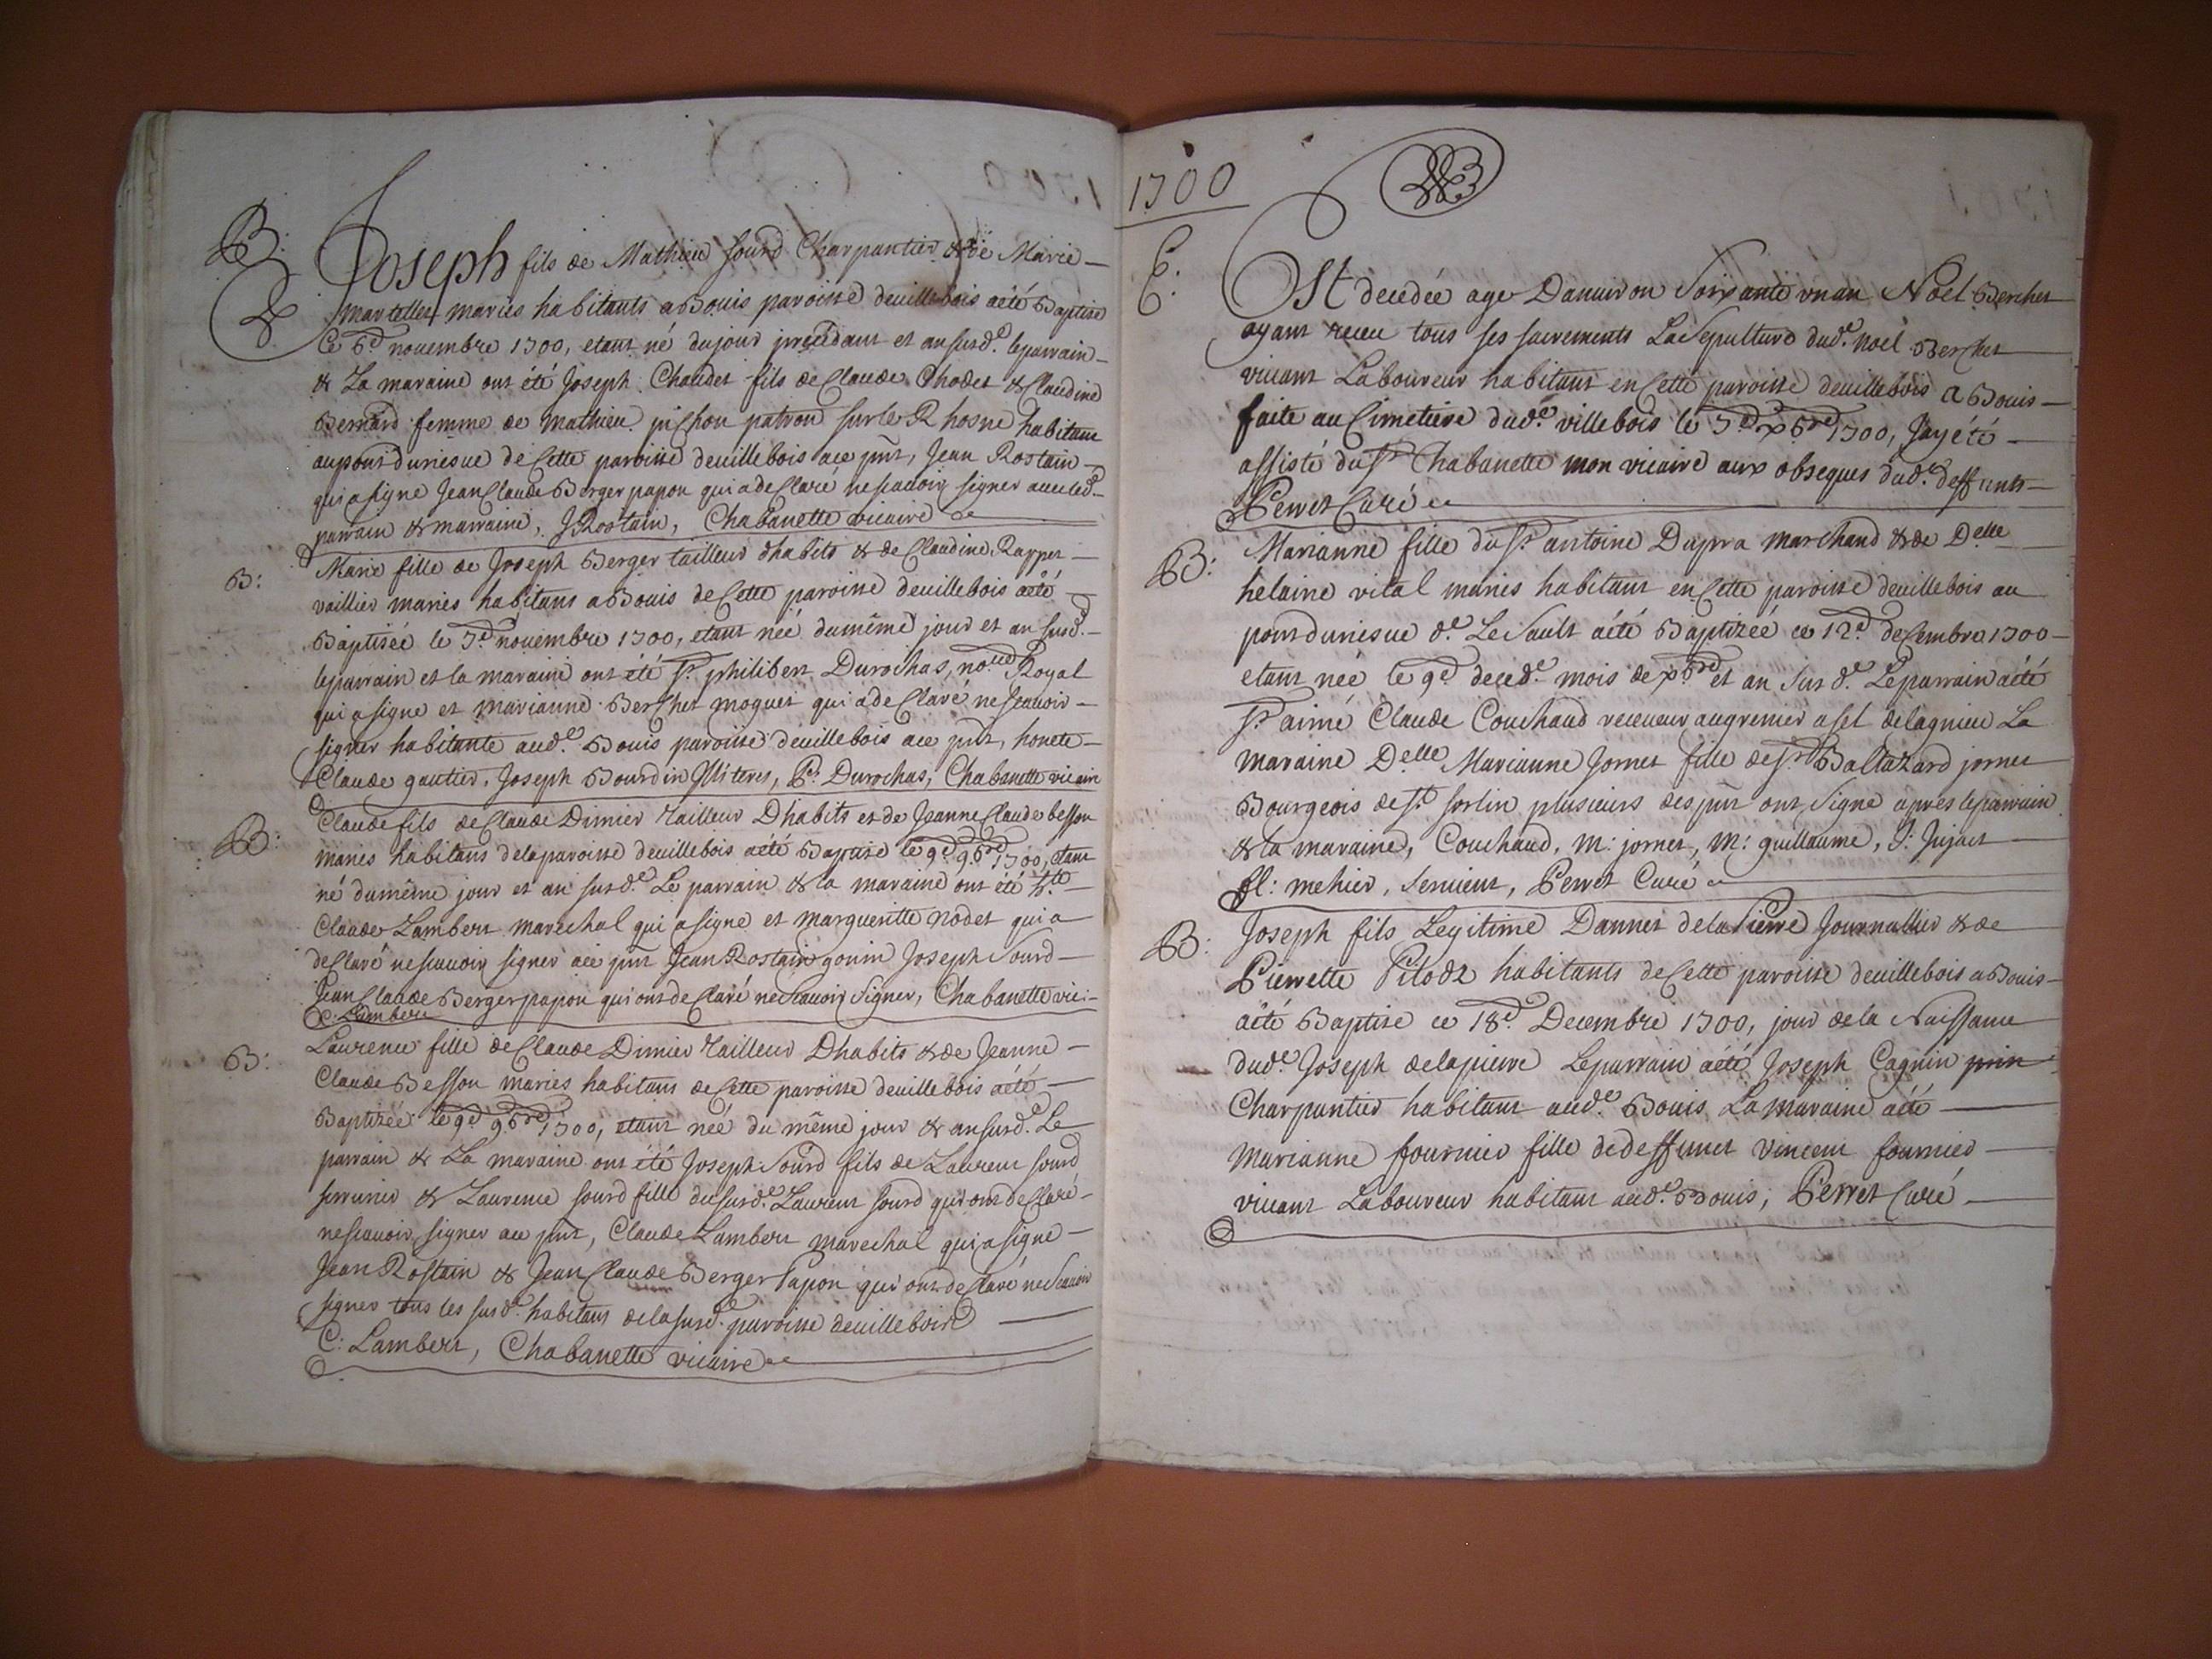 B: Joseph fils de Mathieu sourd Charpantier & de Marie
martellet mariés habitants a Bouis paroisse deuillebois aété Baptisé
Ce 6.d nouembre 1700, etant né dujour precedant et an susd.e leparrain
& La maraine ont été Joseph Chaudet fils de Claude Chodet & Claudine
Bernard femme de mathieu pichon patron sur le Rhosne habitant
aupont duriesue de Cette paroisse deuillebois ace pñt, Jean Rostain
qui a signe Jean Claude Berger papon qui a deClaré nescauoir signer auec led.
parrain & marraine, J Rostain, Chabanette vicaire
B: Marie fille de Joseph Berger tailleur dhabits & de Claudine Rapper
vaillier mariés habitans a Bouis de Cette paroisse deuillebois aété
Baptisée le 7.d nouembre 1700, etant née dumême jour et an susd.
leparrain et la maraine ont été s.r philibert Durochas, no.re Royal
qui a signe et marianne Berchet moguet qui a deClaré nescauoir
signer habitante aud.e Bouis paroisse deuillebois ace pñt, honete
Claude gautier, Joseph Bourdin Illiteres, P: Durochas, Chabanette vicaire
B: Claude fils de Claude Dimier Tailleur Dhabits et de Jeanne Claude besson
mariés habitans delaparoisse deuillebois aété Baptisé le 9.e 9bre 1700, etant
né dumême jour et an susd.e Le parrain & la maraine ont été h.te
Claude Lambert marechal qui a signe et margueritte Nodet qui a
deClaré nescauoir signer ace pñt Jean Rostain gonin Joseph Sourd
Jean Claude Berger papon qui ont deClaré nescauoir signer, Chabanette vic:
C: Lambert
B: Laurence fille de Claude Dimier Tailleur Dhabits & de Jeanne
Claude Besson mariés habitans de Cette paroisse deuillebois aété
Baptizée le 9.d 9bre 1700, etant née du même jour & an susd.e Le
parrain & La maraine ont été Joseph Sourd fils de Laurent sourd
serrurier & Laurence sourd fille du susd.e Laurent sourd qui ont deClaré
nescauoir signer ace pñt, Claude Lambert marechal qui a signe
Jean Rostain & Jean Claude Berger Papon qui ont deClaré nescauoir
signer tous les susd.e habitans delasusd. paroisse deuillebois
C: Lambert, Chabanette vicaire
1700
E: Est decedée age Danuiron Soixante vn an Noel Berchet
ayant receu tous ses sacrements La Sepulture dud.e Noel Berchet
viuant Laboureur habitant en Cette paroisse deuillebois a Bouis
faite au Cimetiere dud.e villebois le 7.d xbre 1700, Jay été
assisté du s.r Chabanette mon vicaire aux obseques dud.e deffunts
Perret Curé
B: Marianne fille du s.r antoine Dupra marchand & de Delle
helaine vital mariés habitant en Cette paroisse deuillebois au
pont duriesue d.e Le Sault aété Baptizée ce 12.d deCembre 1700
etant née le 9.d deced.e mois de xbre et an Susd.e Leparrain aété
s.r aimé Claude Couchaud receueur augrenier asel delagnieu La
maraine Delle Marianne Jornet fille de s.r Baltazard jornet
Bourgeois de s.t sorlin plusieurs des pñt ont Signe apres leparrain
& la maraine, Couchaud, m: jornet, M: guillaume, J: Jujat
fl: mehier, Seruient, Perret Curé
B: Joseph fils Legitime Dannet de la Pierre Journallier & de
Pierrette Pilodz habitants de Cette paroisse deuillebois a Bouis
aété Baptise ce 18.d Decembre 1700, jour de la Naissance
dud.e Joseph delapierre Leparrain aété Joseph Cagnin
Charpantier habitant aud.e Bouis La maraine aété
Marianne fournier fille de deffunct vincent fournier
viuant Laboureur habitant aud.e Bouis, Perret Curé